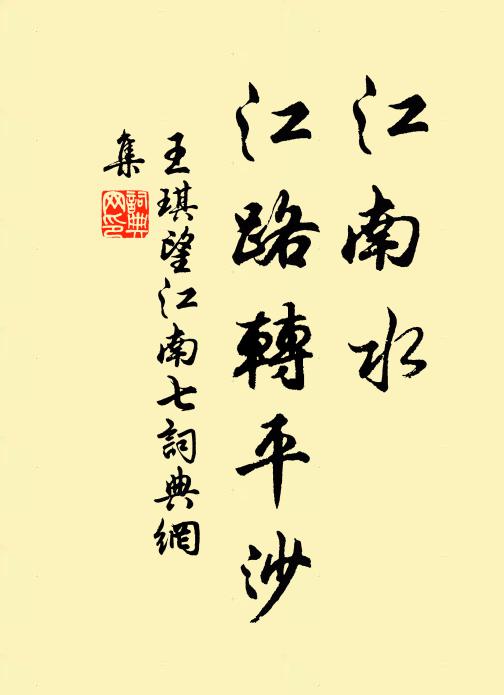 江南水
江路轉平沙
王琪望江南七詞典網
集
詞典网印